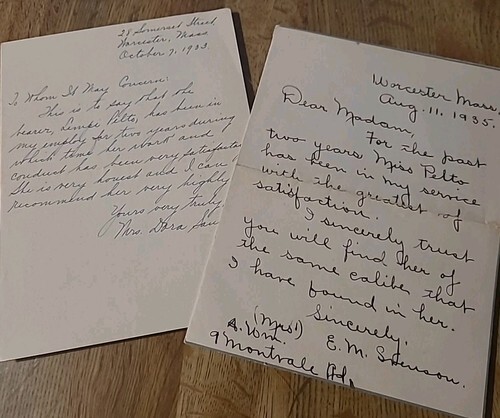 28 Somerset Street
Worcester, Mass
October 7, 1933.
To Whom It May Concern:
This is to say that the
bearer, Lempi Pelto, has been in
my employ for two years during
which time her work and
conduct has been very satisfactory
She is very honest and I can
recommend her very highly
Yours very truly
Mrs. Dora
Worcester Mass.
Aug. 11. 1935.
Dear Madam,
For the past
two years Miss Pelto
has been in my service
with the greatest of
satisfaction.
I sincerely trust
you will find her of
the same caliber that
I have found in her.
Sincerely,
(Mrs.) E. M. Swenson.
A. Wm.
9 Montvale Rd.